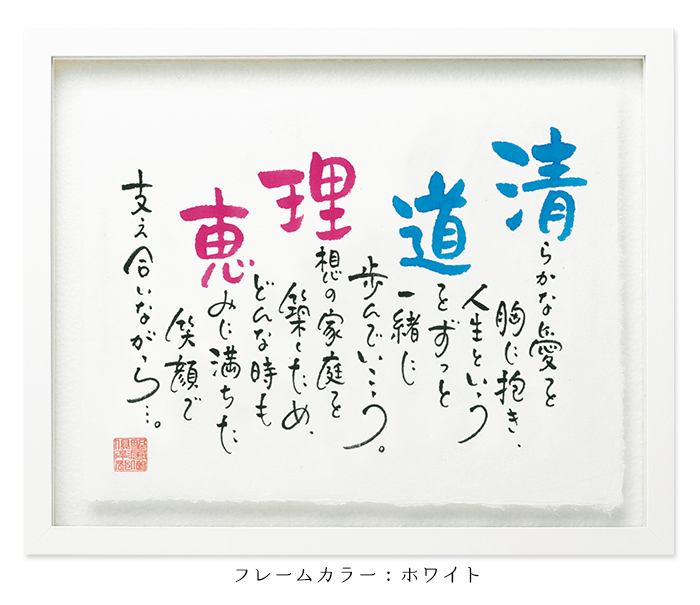 清らかな愛を
胸に抱き、
人生という
道をずっと
一緒に
歩んでいこう。
理想の家庭を
築くため、
どんな時も
恵みに満ちた
笑顔で
支え合いながら…。
フレームカラー：ホワイト